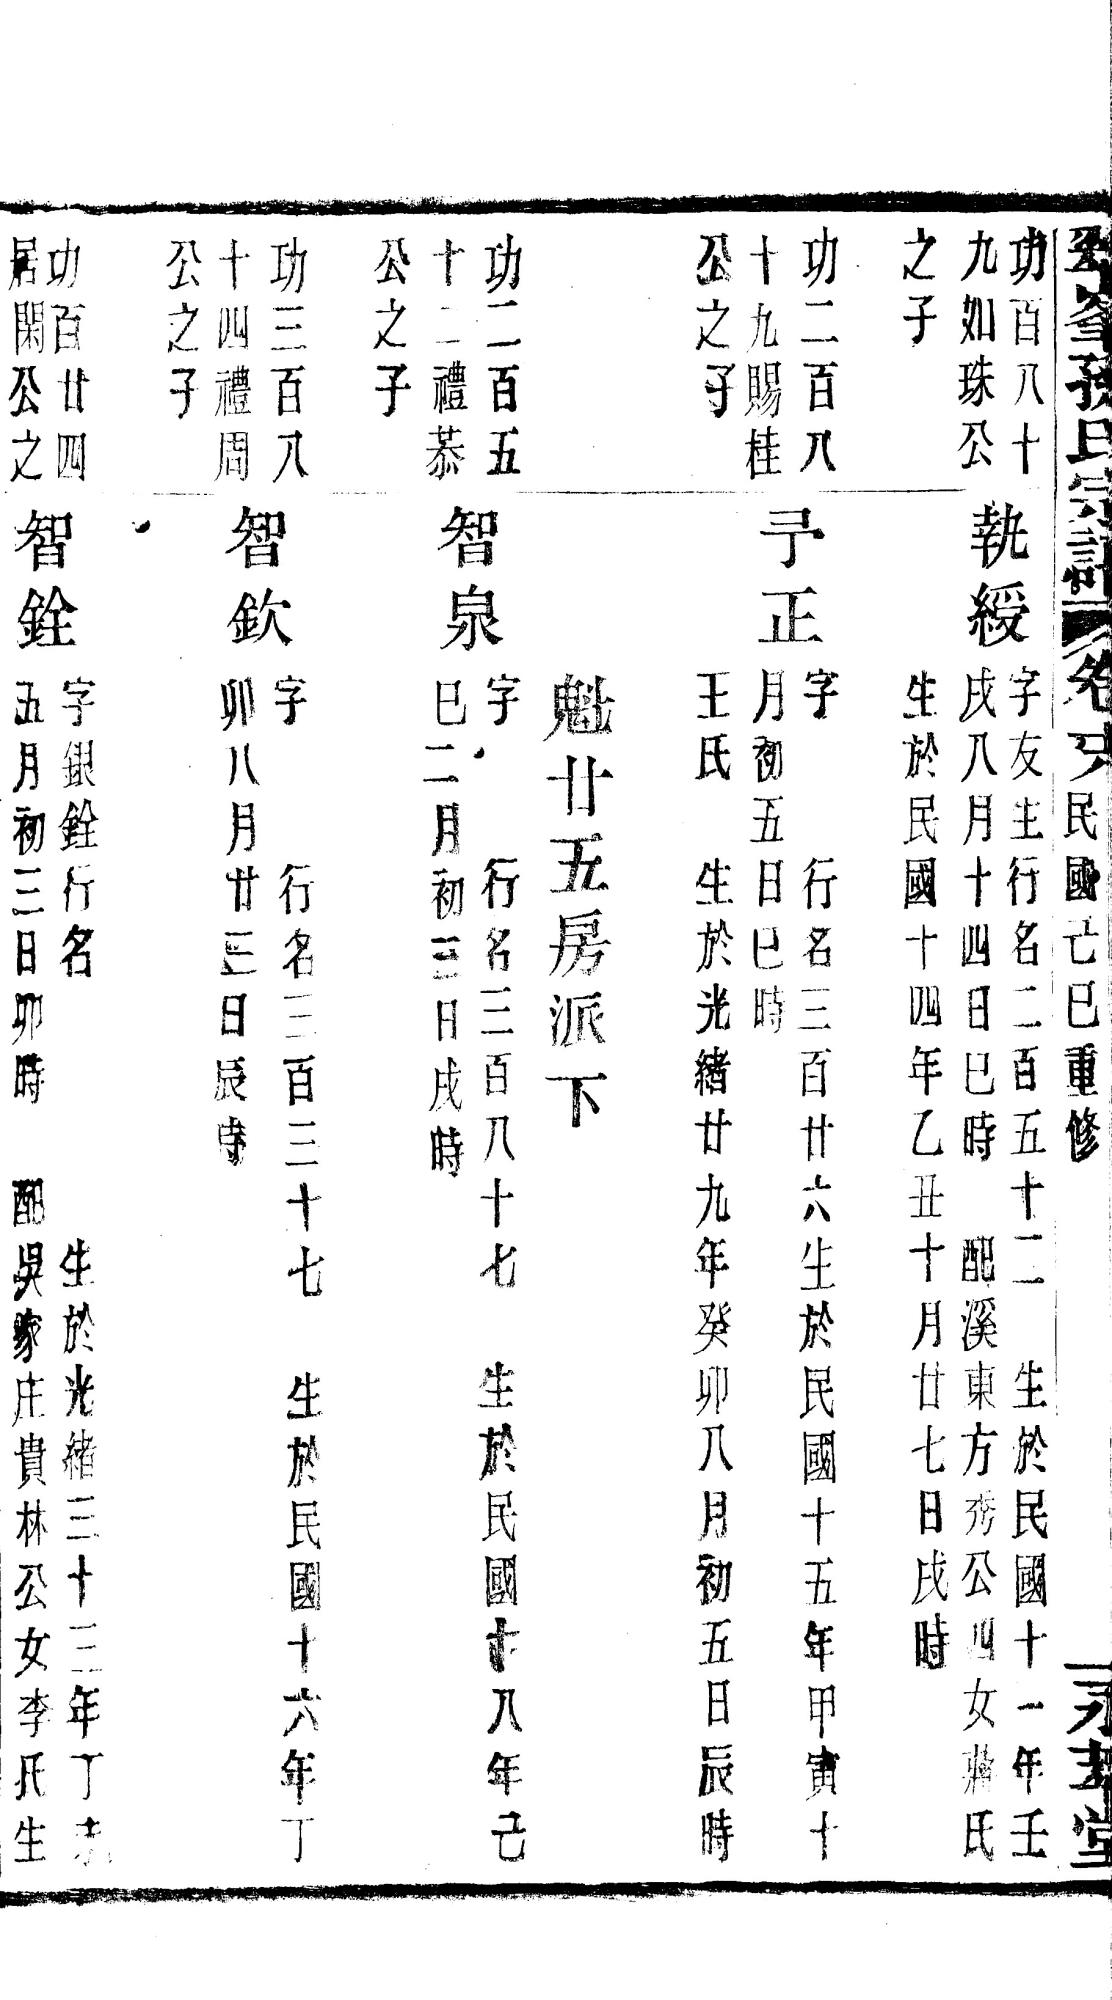 峯孫氏宗譜 卷 民國己巳重修 永 堂
功百八十
九如珠公
之子
執綬
字友生行名二百五十二 生於民國十一年壬
戌八月十四日巳時 配溪東方秀公四女蔣氏
生於民國十四年乙丑十月廿七日戌時
功二百八
十九賜桂
公之子
予正
字 行名三百廿六生於民國十五年甲寅十
月初五日巳時
王氏 生於光緒廿九年癸卯八月初五日辰時
魁廿五房派下
功二百五
十二禮恭
公之子
智泉
字 行名三百八十七 生於民國十八年己
巳二月初三日戌時
功三百八
十四禮周
公之子
智欽
字 行名三百三十七 生於民國十六年丁
卯八月廿三日辰時
功百廿四
居閑公之
智銓
字銀銓行名 生於光緒三十三年丁未
五月初三日卯時 配吳家庄貴林公女李氏生